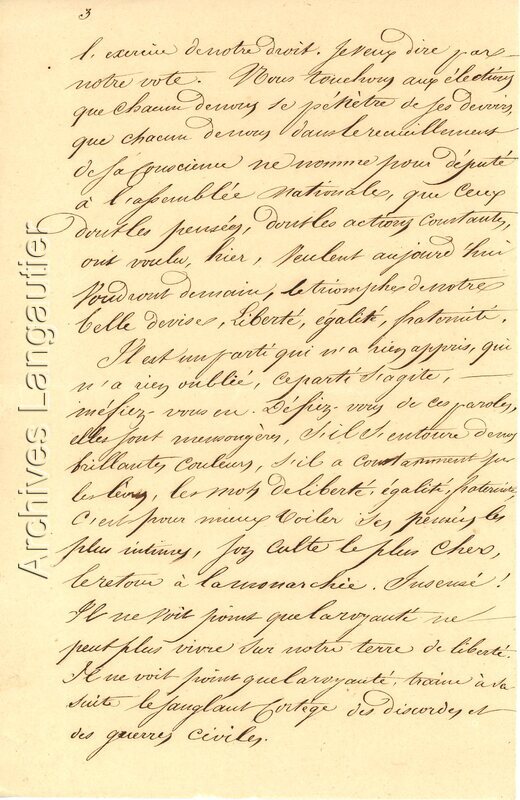 3
l'exercice de notre droit. Je veux dire par
notre vote. Nous touchons aux élections
que chacun de nous se pénètre de ses devoirs,
que chacun de nous dans le recueillement
de sa conscience ne nomme pour député
à l'assemblée Nationale, que ceux
dont les pensées, dont les actions constantes,
ont voulu, hier, veulent aujourd'hui
voudront demain, le triomphe de notre
belle devise, Liberté, égalité, fraternité.
Il est un parti qui n'a rien appris, qui
n'a rien oublié, ce parti s'agite, —
méfiez-vous en. Défiez-vous de ces paroles,
elles sont mensongères, s'il s'entoure de nos
brillantes couleurs, s'il a constamment sur
les lèvres, les mots de liberté, égalité, fraternité
c'est pour mieux voiler ses pensées les
plus intimes, son culte le plus cher,
le retour à la monarchie. Insensé!
Il ne voit point que la royauté ne
peut plus vivre sur notre terre de liberté.
Il ne voit point que la royauté, traine à sa
suite le sanglant cortège des discordes et
des guerres civiles.
Archives Langautier